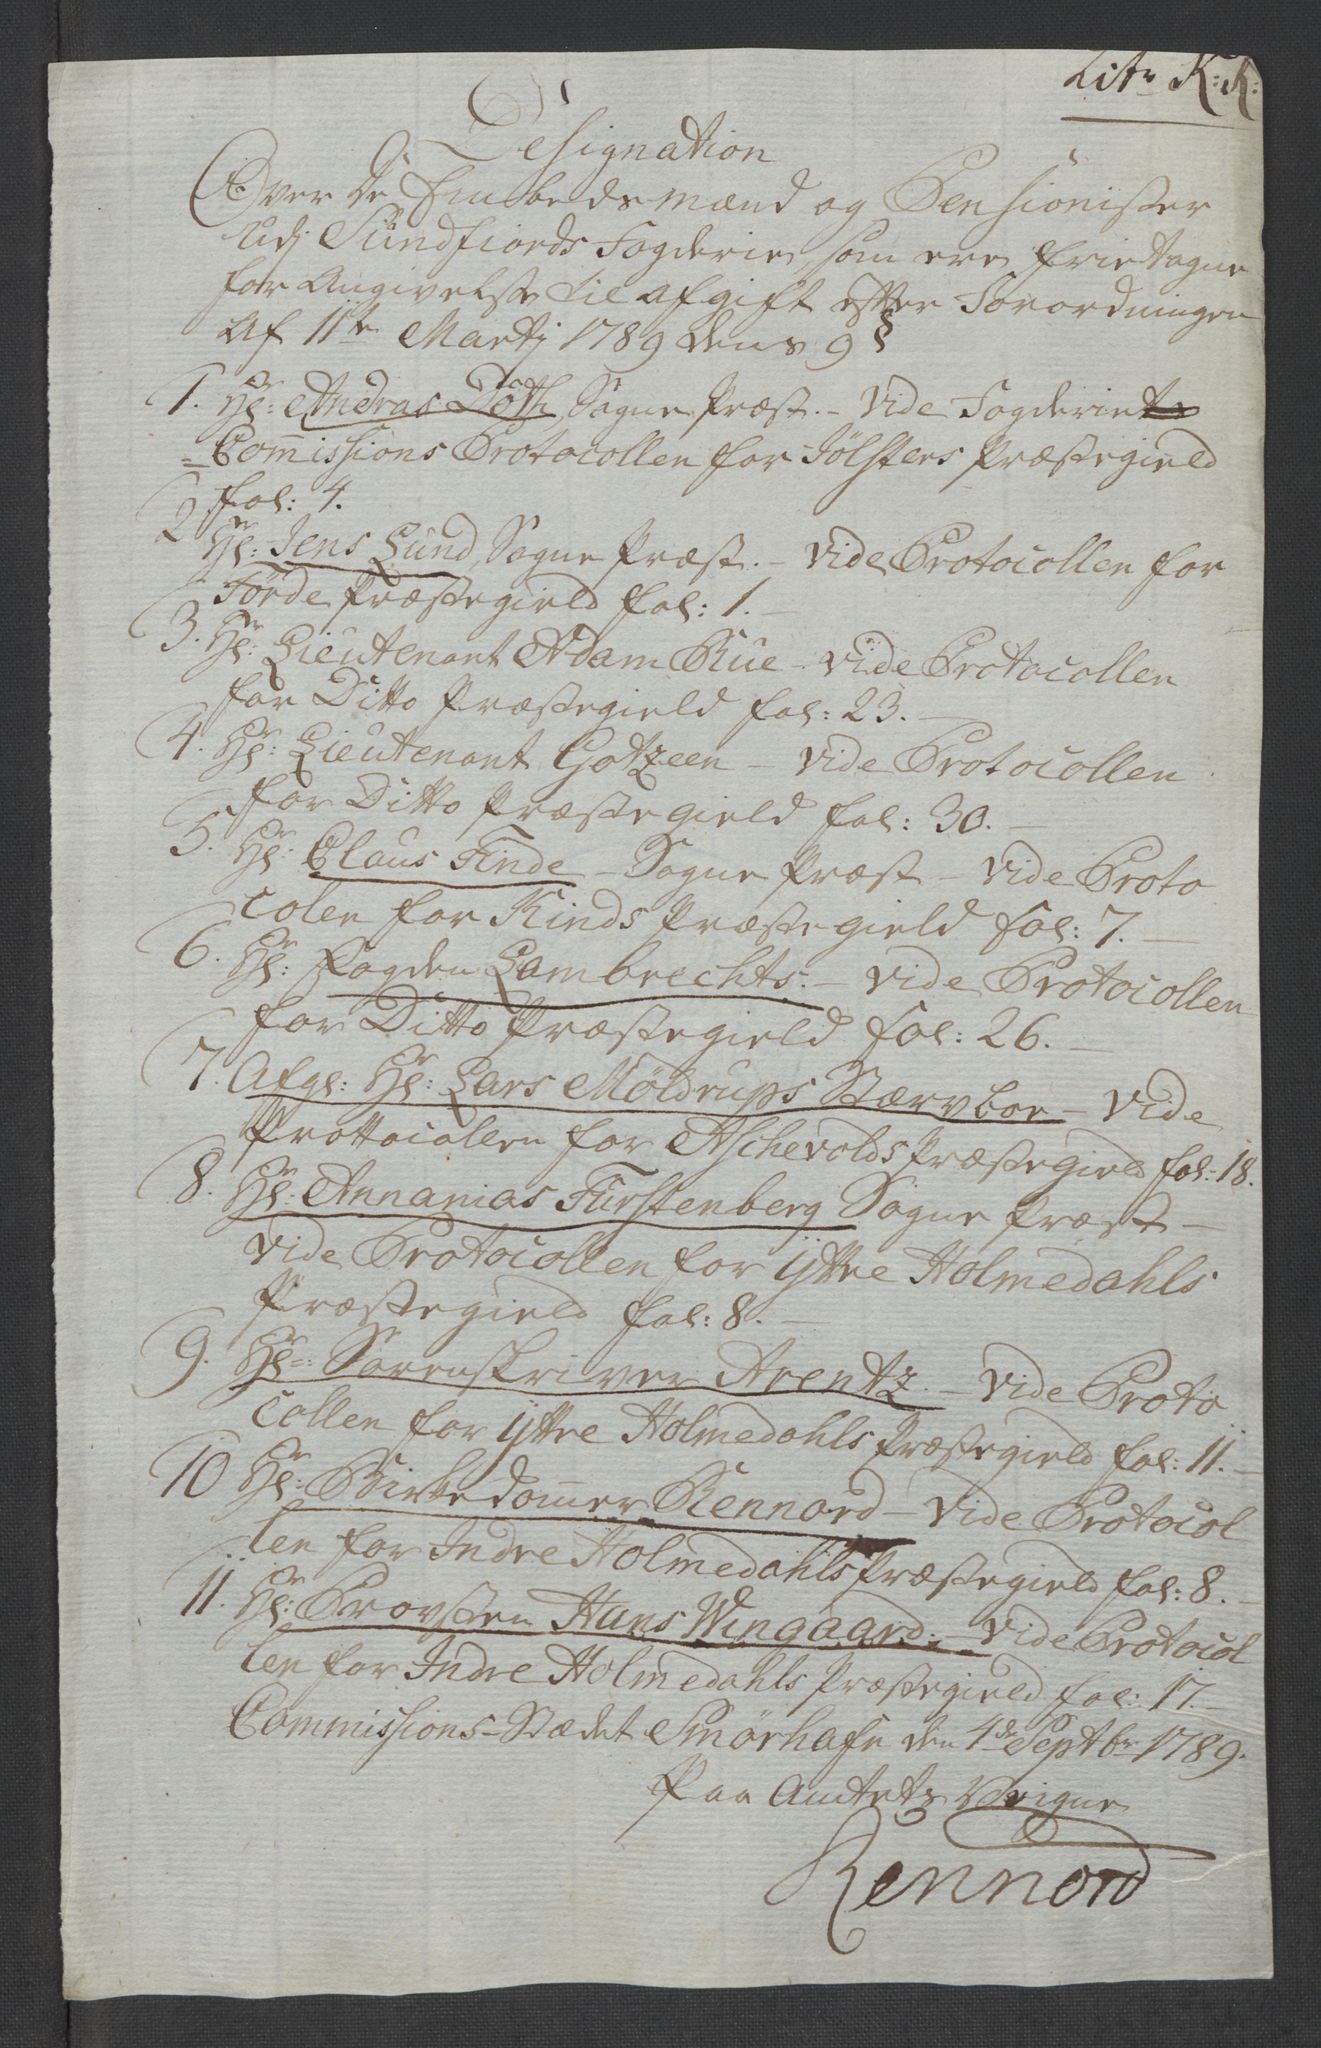 Litr K: K:
Designation
Over De Embedsmænd og Pensionister
udj Sundfiords Fogderie, som ere frietagne
for Angivelse til afgift efter Forordningen
Af 11te Martj 1789 dens 9 §
1. Hr: Andras Döth, Sogne Præst. - Vide Fogderiets
Commissions Protocollen for Jölsters Præstegield
fol: 4.
2. Hr: Jens Lund, Sogne Præst. - Vide Protocollen for
Förde Præstegield fol: 1. -
3. Hr: Lieutenant Adam Rüe - Vide Protocollen
for Ditto Præstegield fol: 23. -
4. Hr: Lieutenant Gotzeen - Vide Protocollen
for Ditto Præstegield fol: 30. -
5. Hr: Claus Finde - Sogne Præst - Vide Proto
colen for Kinds Præstegield fol: 7. -
6. Hr: Fogden Lambrechts. - Vide Protocollen
for Ditto Præstegield fol: 26. -
7. Afgl: Hr: Lars Möldrups Stærvboe - Vide
Prottocollen for Aschevolds Præstegield fol: 18.
8. Hr: Annanias Fürstenberg Sogne Præst -
Vide Protocollen for ÿttre Holmedahls
Præstegield fol: 8. -
9. Hr: Sorenskriver Arentz. - Vide Proto
collen for ÿttre Holmedahls Præstegield fol: 11. -
10 Hr: Birkedommer Rennord - Vide Protocol
len for Indre Holmedahls Præstegield fol: 8. -
11. Hr: Provsten Hans Wingaard. - Vide Protocol
len for Indre Holmedahls Præstegield fol: 17. -
Commissions-Stædet Smörhafn den 4de Septbr 1789.
Paa Amtets Veigne
Rennord